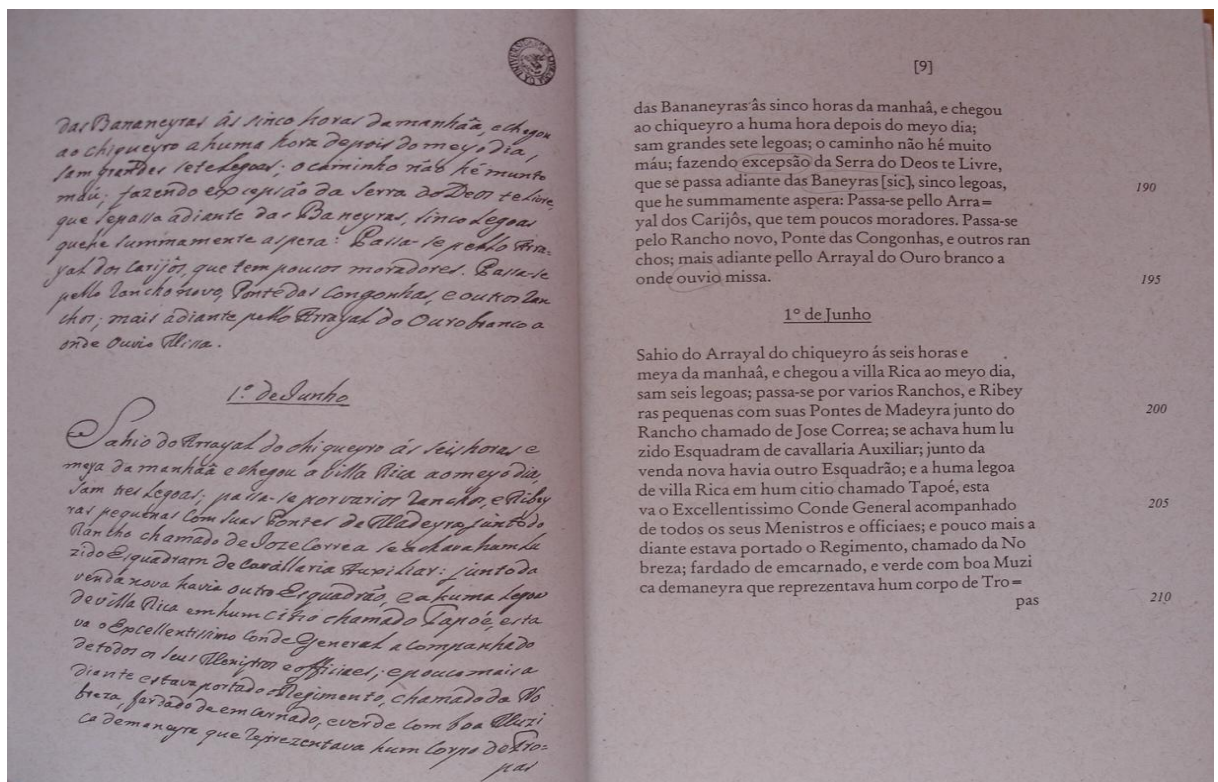 das Bananeyras ás sinco horas da manhaâ, e chegou
ao chiqueyro a huma hora depois do meyo dia,
sam grandes sete Legoas; o caminho não hé munto
máu; fazendo excepsão da Serra do Deos te Livre,
que se passa adiante das Baneyras, sinco Legoas
que he summamente aspera: Passa-se pello Arra-
yal dos Carijôs, que tem poucos moradores. Passa-se
pello Rancho novo, Ponte das Congonhas, e outros Ran
chos; mais adiante pello Arrayal do Ouro branco a
onde Ouvio Missa.
1º de Junho
Sahio do Arrayal do chiqueyro ás seis horas e
meya da manhaâ e chegou a villa Rica ao meyo dia,
sam tres Legoas; passa-se por varios Ranchos, e Ribey
ras pequenas com suas Pontes de Madeyra junto do
Rancho chamado de Joze Correa se achava hum Lu
zido Esquadram de Cavallaria Auxiliar: junto da
venda nova havia outro Esquadrão, e a huma Legoa
de villa Rica em hum citio chamado Tapoé, esta
va o Excellentissimo Conde General acompanhado
de todos os seus Menistros e officiaes; e pouco mais a
diante estava portado o Regimento, chamado da No
breza, fardado de emcarnado, e verde com boa Muzi
ca demaneyra que reprezentava hum Corpo de Tro=
pas
[9]
das Bananeyras âs sinco horas da manhaâ, e chegou
ao chiqueyro a huma hora depois do meyo dia;
sam grandes sete legoas; o caminho não hé muito
máu; fazendo excepsão da Serra do Deos te Livre,
que se passa adiante das Baneyras [sic], sinco legoas, 190
que he summamente aspera: Passa-se pello Arra=
yal dos Carijôs, que tem poucos moradores. Passa-se
pelo Rancho novo, Ponte das Congonhas, e outros ran
chos; mais adiante pello Arrayal do Ouro branco a
onde ouvio missa. 195
1º de Junho
Sahio do Arrayal do chiqueyro ás seis horas e
meya da manhaâ, e chegou a villa Rica ao meyo dia,
sam seis legoas; passa-se por varios Ranchos, e Ribey
ras pequenas com suas Pontes de Madeyra junto do 200
Rancho chamado de Jose Correa; se achava hum lu
zido Esquadram de cavallaria Auxiliar; junto da
venda nova havia outro Esquadrão; e a huma legoa
de villa Rica em hum citio chamado Tapoé, esta
va o Excellentissimo Conde General acompanhado 205
de todos os seus Menistros e officiaes; e pouco mais a
diante estava portado o Regimento, chamado da No
breza; fardado de emcarnado, e verde com boa Muzi
ca demaneyra que reprezentava hum corpo de Tro=
pas 210